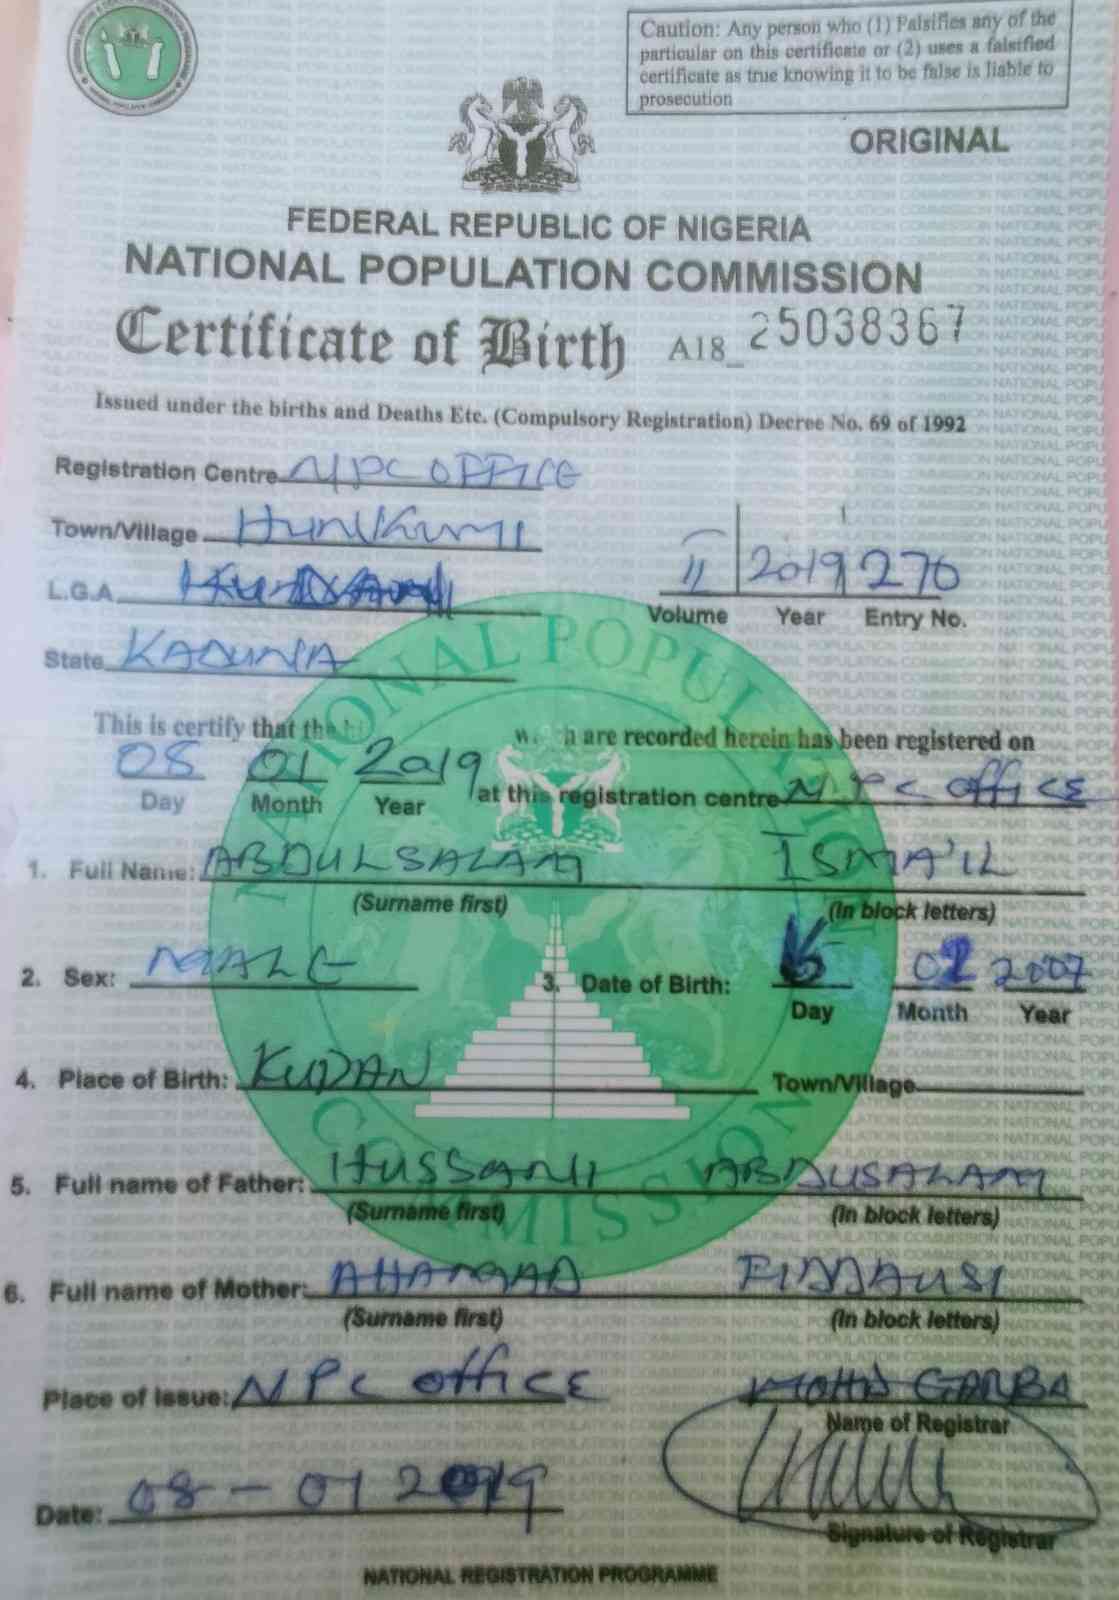 Caution: Any person who (1) Falsifies any of the
particular on this certificate or (2) uses a falsified
certificate as true knowing it to be false is liable to
prosecution
ORIGINAL
FEDERAL REPUBLIC OF NIGERIA
NATIONAL POPULATION COMMISSION
Certificate of Birth A18_ 25038367
Issued under the births and Deaths Etc. (Compulsory Registration) Decree No. 69 of 1992
Registration Centre NPC OFFICE
Town/Village
L.G.A
II 2019 270
Volume Year Entry No.
State KADUNA
This is certify that the are recorded herein has been registered on
08 01 2019 at this registration centre NPC office
Day Month Year
1. Full Name: ABDULSALAM ISMA'IL
(Surname first) (In block letters)
2. Sex: MALE 3. Date of Birth: 02 2007
Day Month Year
4. Place of Birth: KUDAN Town/Village
5. Full name of Father: HUSSANI ABDUSALAM
(Surname first) (In block letters)
6. Full name of Mother: AHAMAD FIDDAUSI
(Surname first) (In block letters)
Place of issue: NPC office MOHD GARBA
Name of Registrar
Date: 08-01 2019
Signature of Registrar
NATIONAL REGISTRATION PROGRAMME
NATIONAL POPULATION COMMISSION